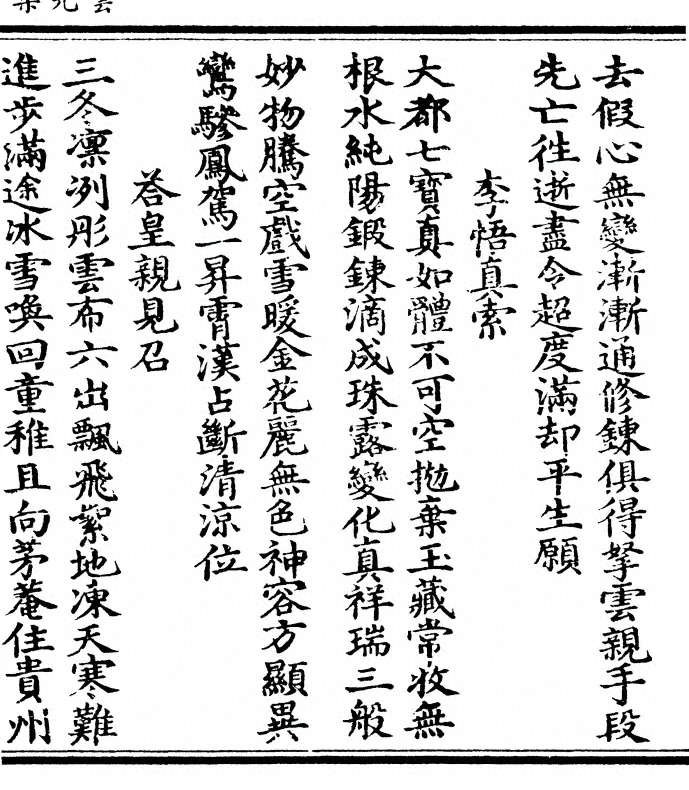 去假心無變漸漸通修鍊俱得拏雲親手段
先亡徃逝盡令超度滿却平生願
李悟真索
大都七寶真如體不可空拋棄玉藏常收無
根水純陽鍛鍊滴成珠露變化真祥瑞三般
妙物騰空戲雪暖金花麗無色神容方顯異
鸞驂鳳駕一昇霄漢占斷清涼位
荅皇親見召
三冬凛冽彤雲布六出飄飛絮地凍天寒難
進步滿途冰雪喚回童稚且向茅菴住貴州